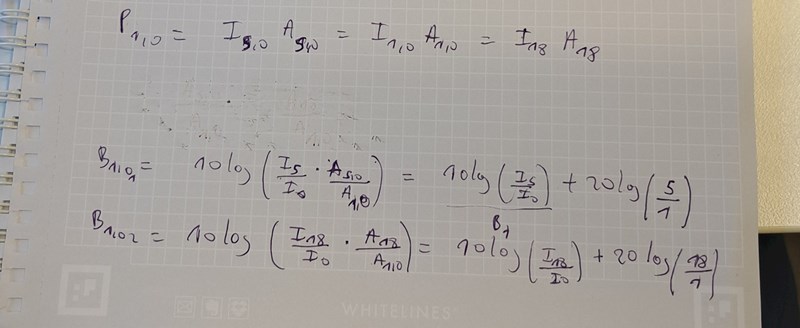 P₁,₀ = I₅,₀ A₅,₀ = I₁,₀ A₁,₀ = I₁₈ A₁₈
B₁,₀₁ = 10 log (I₅/I₀ · A₅,₀/A₁,₀) = 10 log (I₅/I₀) + 20 log (5/1)
B₁
B₁,₀₂ = 10 log (I₁₈/I₀ · A₁₈/A₁,₀) = 10 log (I₁₈/I₀) + 20 log (18/1)
WHITELINES®